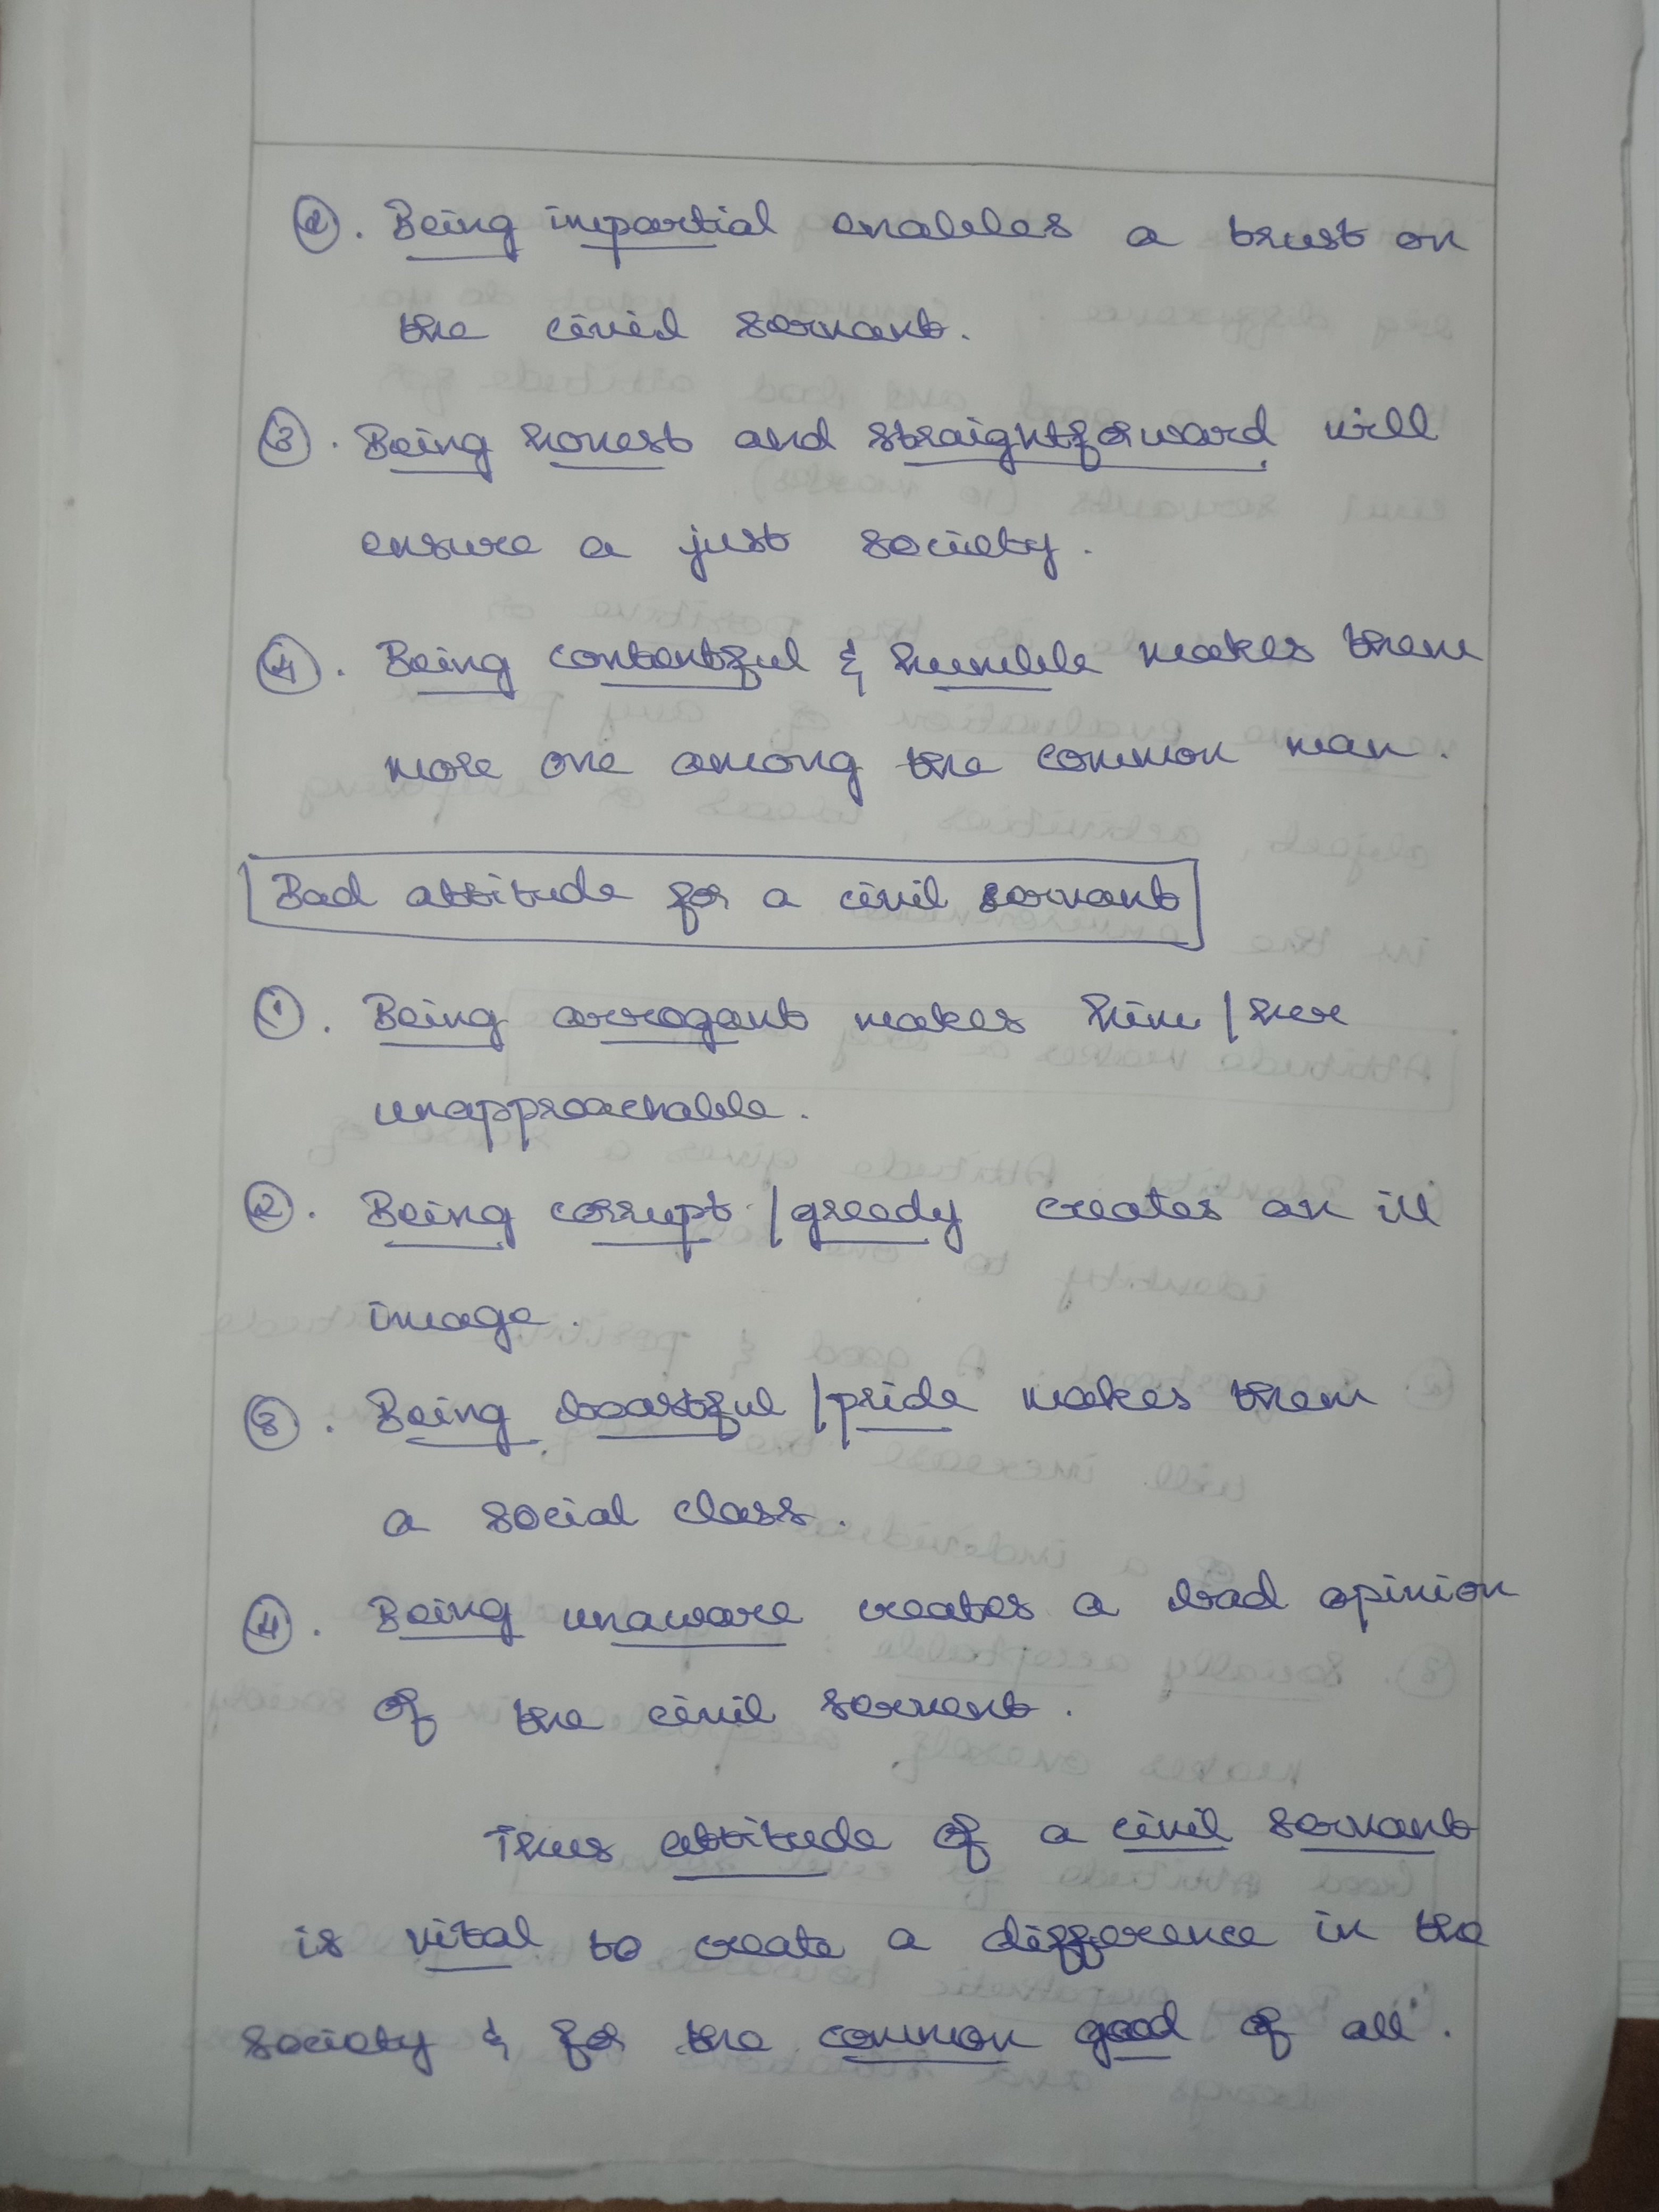 ②. Being impartial enables a trust on
the civil servant.
③. Being honest and straightforward will
ensure a just society.
④. Being contentful & humble makes them
more one among the common man.
Bad attitude for a civil servant
①. Being arrogant makes him/her
unapproachable.
②. Being corrupt/greedy creates an ill
image.
③. Being boastful/pride makes them
a social class.
④. Being unaware creates a bad opinion
of the civil servant.
Thus attitude of a civil servant
is vital to create a difference in the
society & for the common good of all.